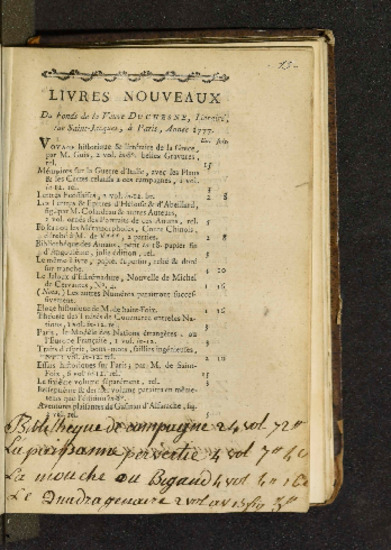 LIVRES NOUVEAUX
Du fonds de la Veuve DUCHESNE, Libraire,
rue Saint-Jacques, à Paris, Année 1777.
VOYAGE historique & littéraire de la Grece,
par M. Guis, 2 vol. in-8°. belles Gravures,
rel.
Mémoires sur la Guerre d'Italie, avec les Plans
& les Cartes relatifs à ces campagnes, 2 vol.
in-12. rel. 5
2 vol. in-12. br. 2 8
Les Lettres & Epîtres d'Héloïse & d'Abeillard,
fig. par M. Colardeau & autres Auteurs,
2 vol. ornés des Portraits de ces Amans, rel. 5
Fo-ka ou les Métamorphoses, Conte Chinois,
dérobé à M. de V***, 2 parties. 2 8
Bibliotheque des Amans, petit in-18. papier fin
d'Angoulême, jolie édition, rel. 5
Le même Livre, papier fin, relié & doré
sur tranche. 4 20
Le Jaloux d'Estrémadure, Nouvelle de Michel
de Cervantes, N°. 4. 1 16
(Nota.) Les autres Numéros paroîtront succes-
sivement.
Eloge historique de M. de Saint-Foix. 1 16
Théorie des Traités de Commerce entre les Na-
tions, 1 vol. in-12. rel. 3
Paris, le Modèle des Nations étrangères, ou
l'Europe Françoise, 1 vol. in-12. 3
Traits d'esprit, bons-mots, saillies ingénieuses,
1 vol. in-12. rel. 2 10
Essais historiques sur Paris, par M. de Saint-
Foix, 6 vol. in-12. rel. 15
Le sixième volume séparément, rel. 3
volume paroîtra en même-
tems que l'édition in-8°.
Aventures plaisantes de Gusman d'Alfarache, fig.
2 vol. rel. 5
Bibliotheque de campagne 24 vol 72#
La paisanne pervertie 4 vol 7#
La mouche ou Bigaud 4 vol
Le Quadragenaire 2 vol